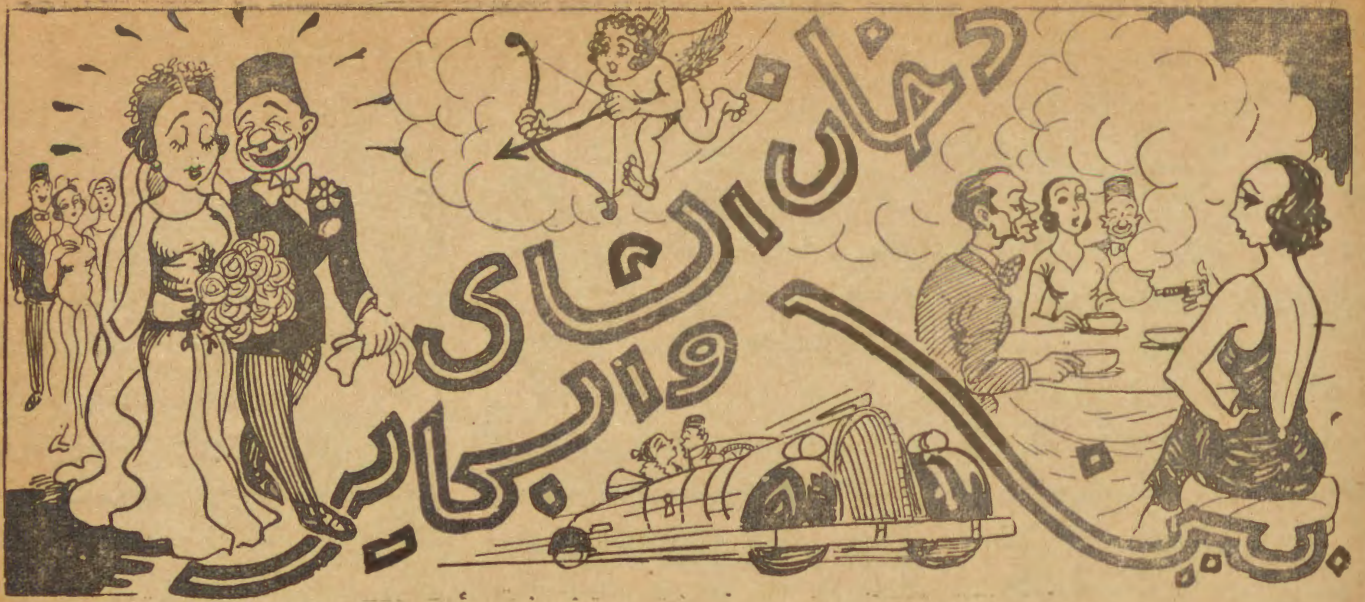 بين
دخان الشاي
والسجاير